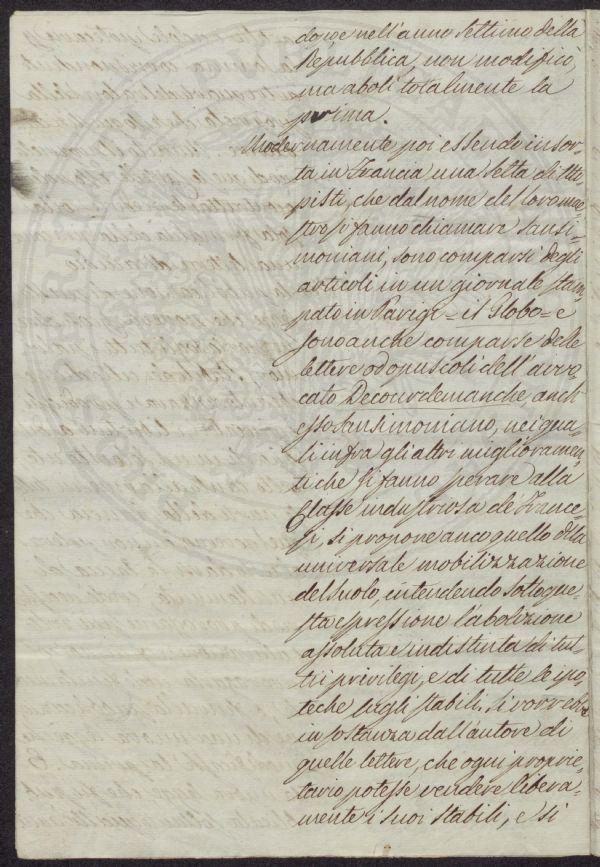 dove nell'anno settimo della
Repubblica, non modificò,
ma abolì totalmente la
prima.
Modernamente poi essendo insor-
ta in Francia una setta di Uto-
pisti, che dal nome del loro mae-
stro si fanno chiamare Sansi-
moniani, sono comparsi degli
articoli in un giornale stam-
pato in Parigi = il Globo = e
sono anche comparse delle
lettere od opuscoli dell'avvo-
cato Decourdemanche, anch'
esso sansimoniano, nei qua-
li infra gli altri miglioramen-
ti che si fanno sperare alla
Classe industriosa de' France-
si, si propone anco quello della
universale mobilizzazione
del suolo, intendendo sotto que-
sta espressione l'abolizione
assoluta e indistinta di tut-
ti i privilegi, e di tutte le ipo-
teche sugli stabili. Si vorrebbe
in sostanza dall'autore di
quelle lettere, che ogni proprie-
tario potesse vendere libera-
mente i suoi stabili, e si